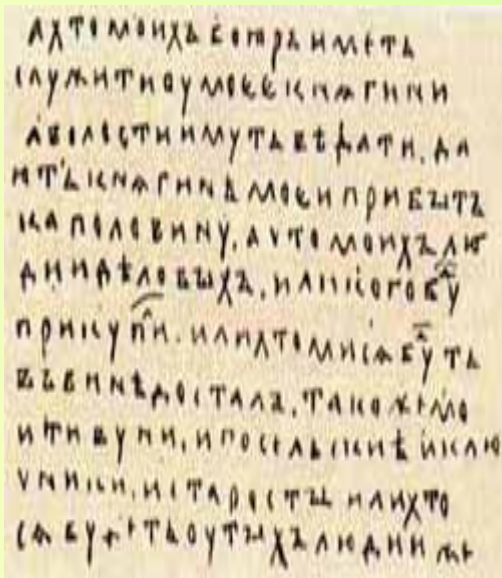 ахтомоихъбоꙗръиметь
служитиоумоеекнѧгини
аволостиимутьвѣдати.да
ютькнѧгинѣмоеиприбытъ
каполовину.ачтомоихълю
диидѣловыхъ.иликогобуⷣ
прикупиⷧ.илихтомисѧбуⷣть
въвинѣдосталъ.такожемо
итивуни.ипосельскиѣиклю
чники.истаростыилихто
сѧбудетьоутыхълюдииже